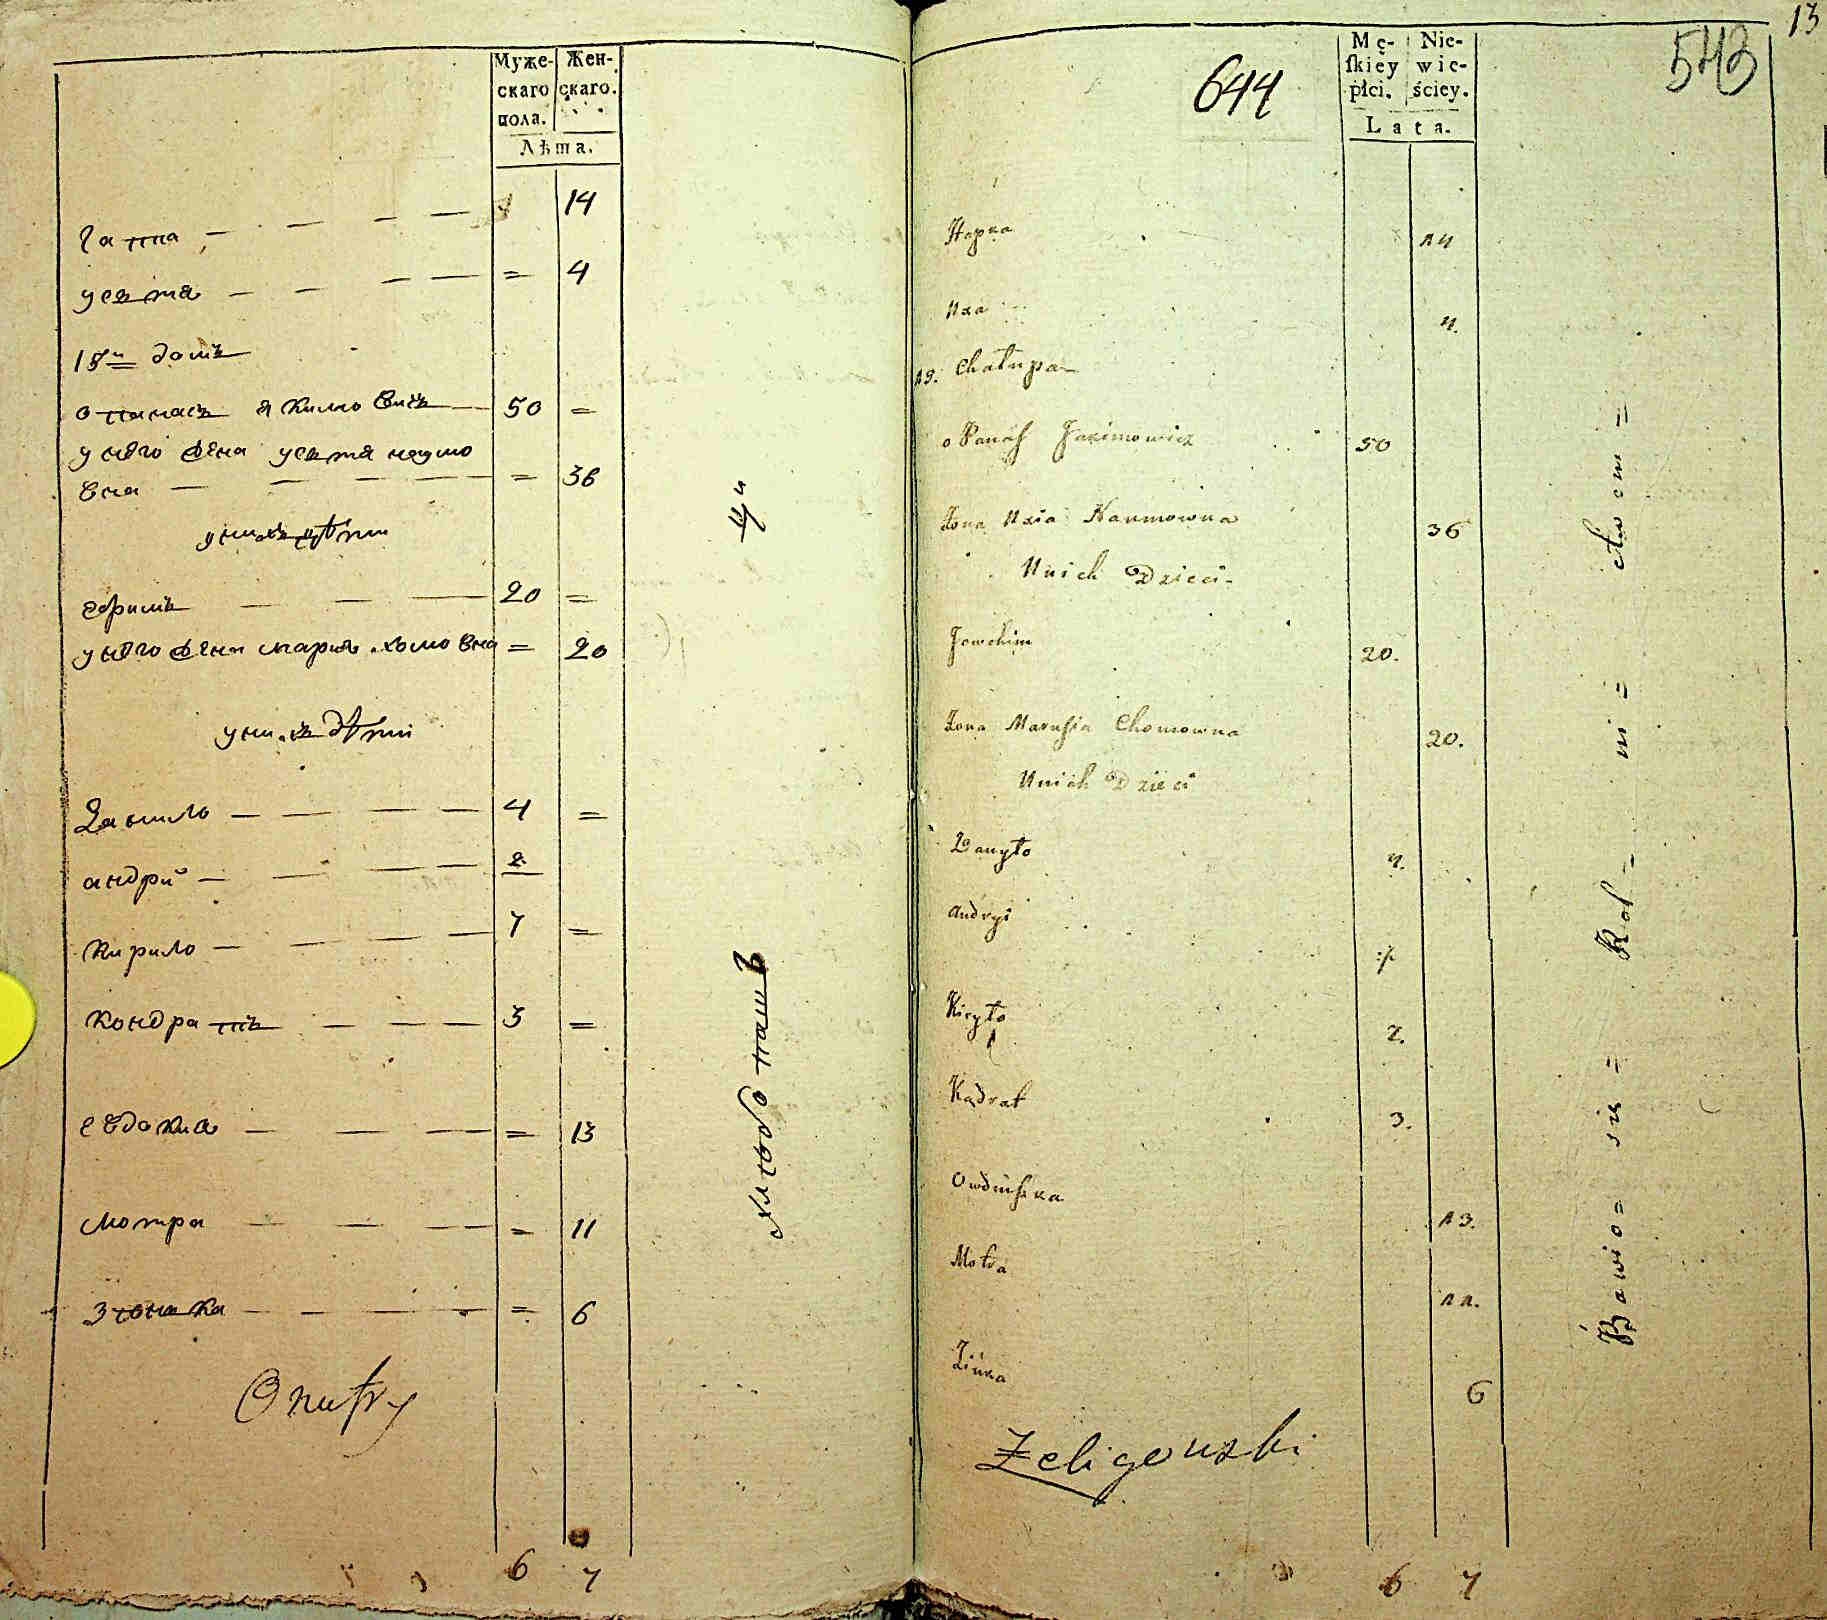 Муже-
скаго
пола.
Жен-
скаго.
Лѣта.
Ганна 14
устя = 4
19й домъ
опанасъ якимовичъ 50 =
у него жена устя наумо
вна = 36
у нихъ дѣти
ефимъ 20 =
у него жена мария хомовна = 20
у нихъ дѣти
Данило 4 =
андрий 2
Кирило 7 =
Кондратъ 3 =
евдокиа = 13
мотра = 11
зѣнька = 6
6 7
хлѣбопаш
цы
644
13
543
Mę-
ſkiey
płci.
Nie-
wie-
ściey.
Lata.
Hapka 14
Uxa 4.
19. Chałupa
oPanaſ Jakimowicz 50
Żona Uxia Naumowna 36
Unich Dzieci
Jowchim 20.
Żona Maruſia Chomowna 20.
Unich Dzieci
Danyło 4.
Andryi
Kiryło 7.
Kądrat 3.
Owduſzka 13.
Motra 11.
Zinka 6
Żeligowski
6 7
Bawio= sie= Rol= ni= ctwem=